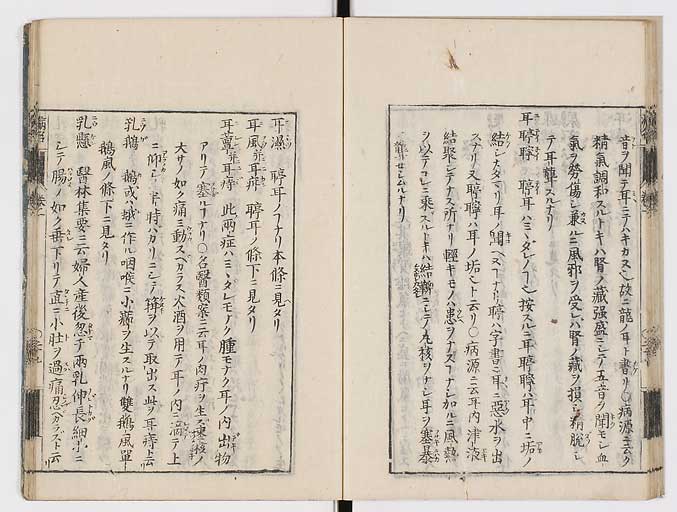 音ヲ聞テ耳ニテハキカズ故ニ龍ノ耳ト書リ〇病源ニ云ク
精氣調和スルトキハ腎ノ藏强盛ニシテ五音ヲ聞モシ血
氣ヲ勞傷シ兼ルニ風邪ヲ受レハ腎ノ藏ヲ損シ精脱シ
テ耳聾スルナリ
耳聤聹 聤耳ハミヽダレノ按スルニ耳聤聹ハ耳中ニ垢ノ
結シカタマリ耳ノ聞ヘヌナリ聤ハ字書ニ耳ニ惡水ヲ出
スナリ又聤聹ハ耳ノ垢ト云リ〇病源ニ云耳内津液
結聚シテナス所ナリ輕キモノハ患ヲナサズナレ加ルニ風熱
ヲ以テコレニ乘スルトキハ結鞕ニシテ丸核ヲナシ耳ヲ塞暴
聾セシムルナリ
耳濕 聤耳ノナリ本條ニ見タリ
耳風 耳痺 聤耳ノ條下ニ見タリ
耳蕈 耳痔 此兩症ハミヽダレモナク腫モナク耳ノ内ニ出物
アリテ塞ルナリ〇名醫類案ニ云耳ノ肉疔ヲ生ズ棗核ノ
大サノ如ク痛ミ動スベカラズ火酒ヲ用テ耳ノ内ニ滴テ上
ニ仰シテ片時ハカリニシテ箝ヲ以テ取出ス此ヲ耳痔ト云
乳鵝 鵝或ハ蛾ニ作ル咽喉ニ小瘡ヲ生スルナリ雙鵝風單
鵝風ノ條下ニ見タリ
乳懸 醫林集要ニ云婦人産後忽チ兩乳伸長細小ニ
シテ腸ノ如ク垂下リテ直ニ小肚ヲ過痛忍ベカラズト云